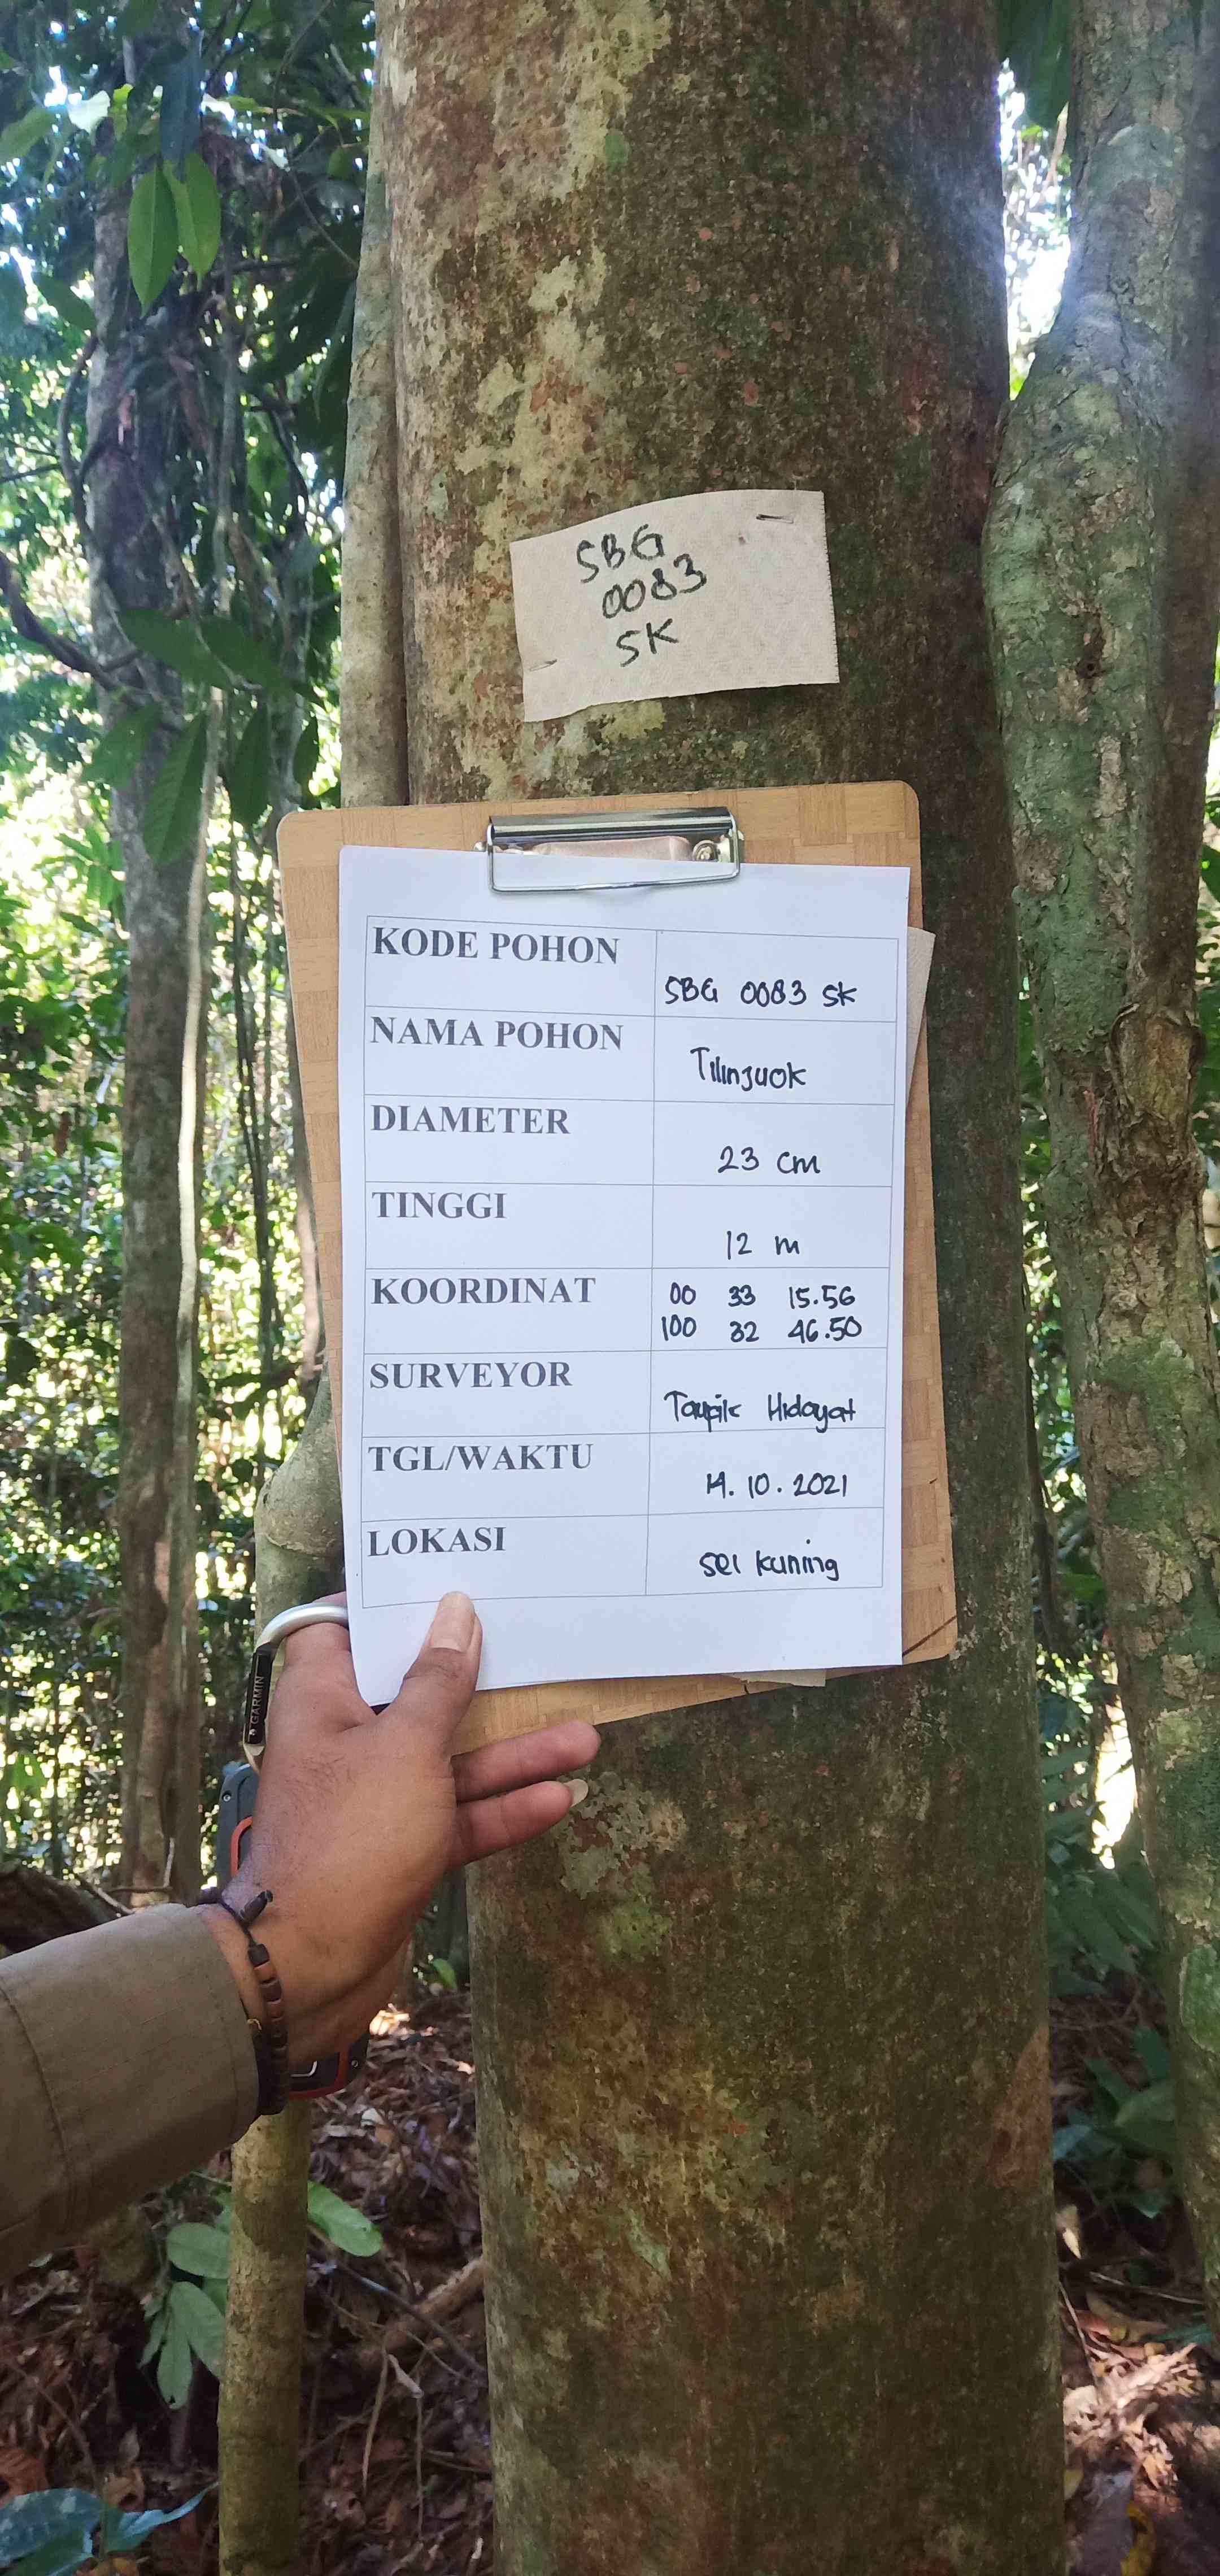 SBG
0083
SK
KODE POHON
SBG 0083 SK
NAMA POHON
Tilinjuok
DIAMETER
23 cm
TINGGI
12 m
KOORDINAT
00 33 15.56
100 32 46.50
SURVEYOR
Taupik Hidayat
TGL/WAKTU
14.10.2021
LOKASI
Sei kuning
GARMIN